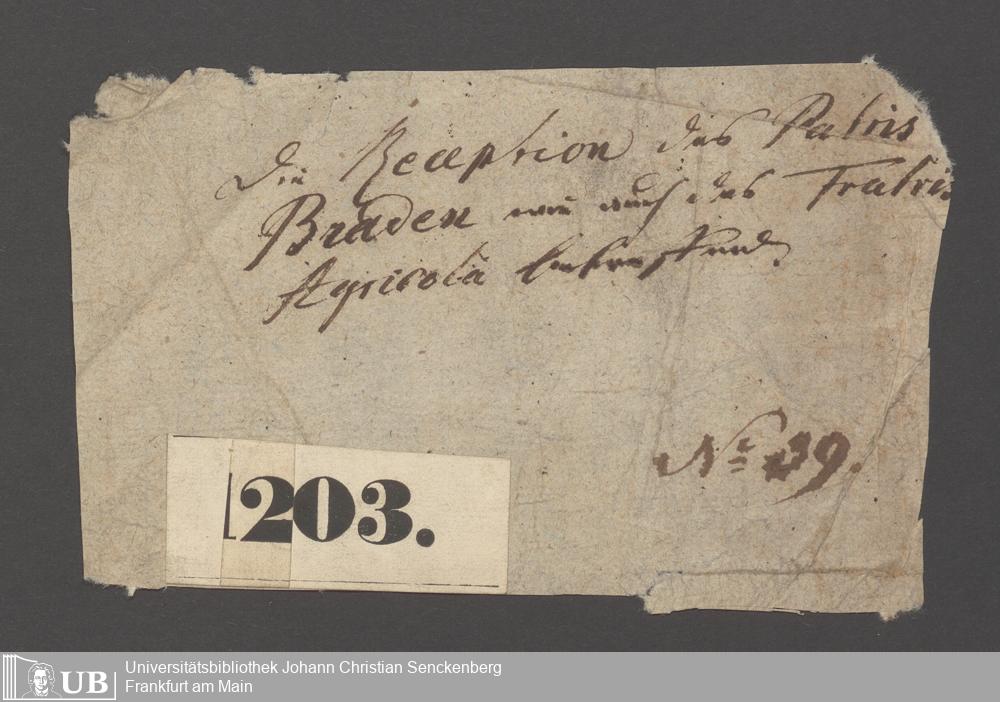 Die Reception des Patris
Braden wie auch des Fratris
Agricola betreffend.
Nr. 39.
1203.
UB
Universitätsbibliothek Johann Christian Senckenberg
Frankfurt am Main